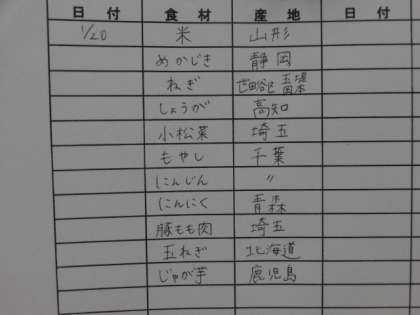 日付 食材 産地 日付
1/20 米 山形
めかじき 静岡
ねぎ 世田谷区
しょうが 高知
小松菜 埼玉
もやし 千葉
にんじん 〃
にんにく 青森
豚もも肉 埼玉
玉ねぎ 北海道
じゃが芋 鹿児島